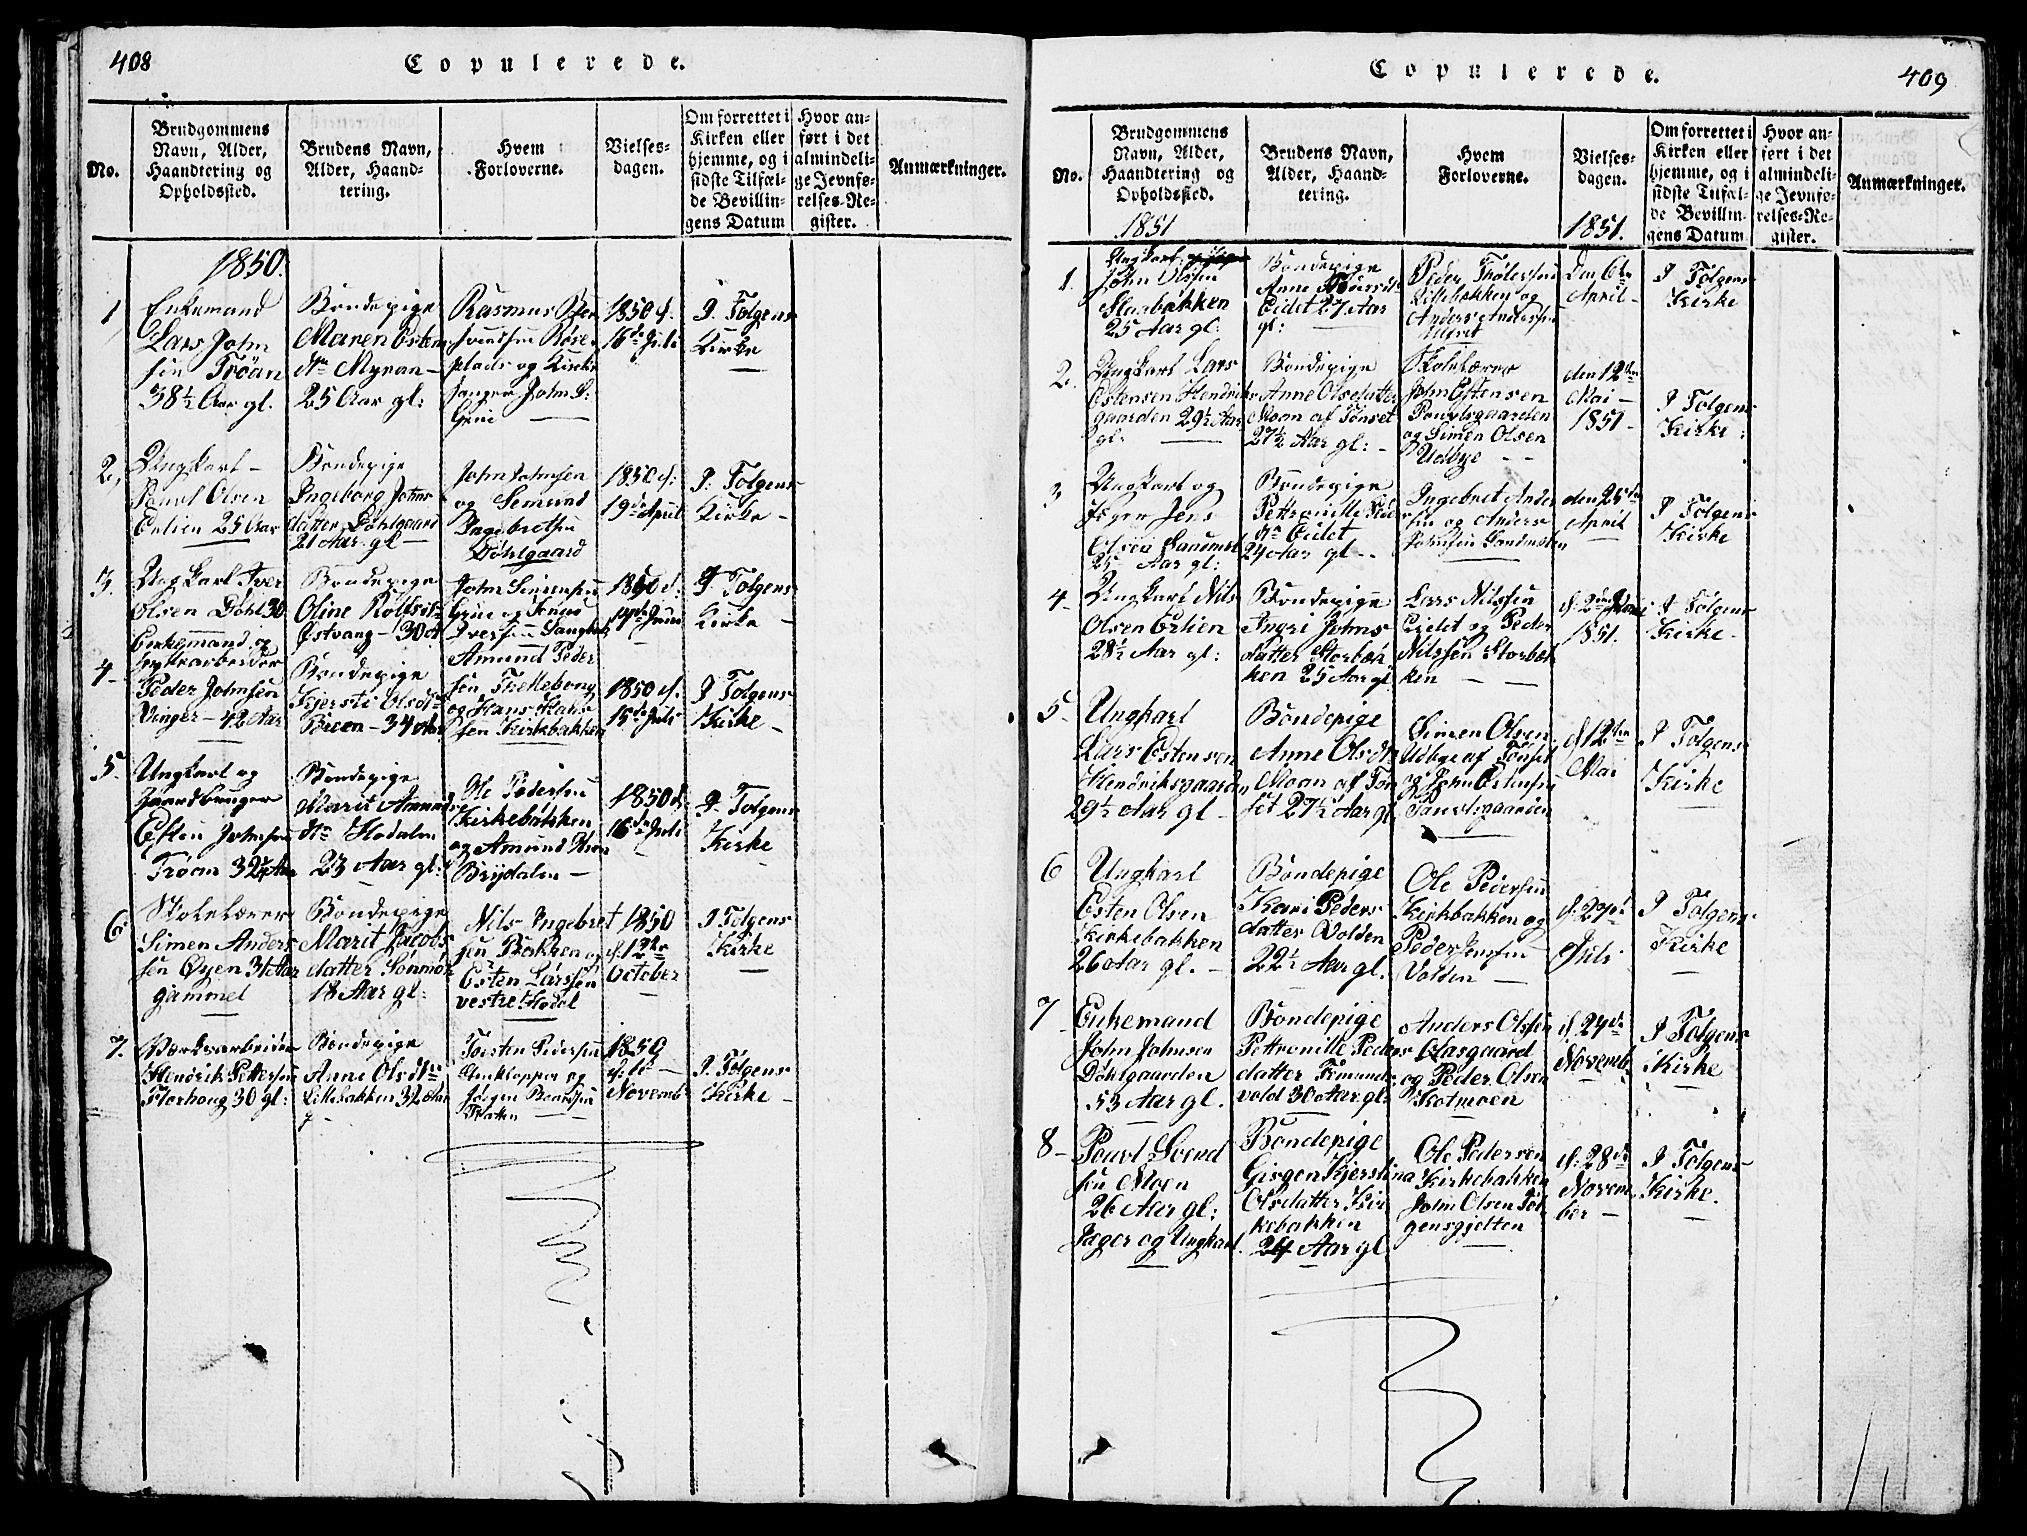 408
Copulerede.
No.
Brudgommens
Navn, Alder,
Haandtering og
Opholdssted.
Brudens Navn,
Alder, Haand-
tering.
Hvem
Forloverne.
Vielses-
dagen.
Om forrettet i
Kirken eller
hjemme, og i
sidste Tilfæl-
de Bevillin-
gens Datum
Hvor an-
ført i det
almindeli-
ge Jevnfø-
relses-Re-
gister.
Anmærkninger.
1850.
1
Enkemand
Lars John
sen Trøan
38½ Aar gl.
Bondepige
Maren Esten
dtr Myran
25 Aar gl:
Rasmus
Røse
plads og Kirke
sanger John S:
Grue
1850 d.
16de Juli
I Tolgens
Kirke
2,
Ungkarl
Poul Olsen
Erlien 25 Aar
Bondepige
Ingeborg Johns
datter Døhlgaard
21 Aar gl
John Johnsen
og Semund
Ingebretsen
Døhlgaard
1850 d.
19de April
I Tolgens
Kirke
3.
Ungkarl Iver
Olsen Døhl 30
Bondepige
Oline Rolfsdtr
Østvang - 30
John Simensen
Grue og Jonas
Iversen
1850 d.
14de Juni
I Tolgens
Kirke
4
Enkemand og
Hyttearbeider
Peder Johnsen
Vinger - 42 Aar
Bondepige
Kjersti Olsdtr
Breen - 34 Aar
Amund Peder
sen
og Hans Hans
sen Kirkbakken
1850 d.
15de Juli
I Tolgens
Kirke
5.
Ungkarl og
Gaardbruger
Esten Johnsen
Trøan 32½ Aar
Bondepige
Marit Amunds
dtr Hodalen
23 Aar gl:
Ole Pedersen
Kirkebakken
og Amund
Brydalen
1850 d.
16de Juli
I Tolgens
Kirke
6
Skolelærer
Simen Anders
sen Øyen 31 Aar
gammel
Bondepige
Marit Jacobs
datter Sønmør
18 Aar gl:
Nils Ingebret
sen Bakken og
Esten Larssen
vestre Hodal
1850
d. 12te
October
I Tolgens
Kirke
7.
Værksarbeider
Hendrik Pettersen
Florhoug 30 gl:
Bondepige
Anne Olsdtr
Lillebakken 31 Aar
Torsten Pedersen
og
Jørgen
1850
Novemb
I Tolgens
Kirke
Copulerede.
409
No.
Brudgommens
Navn, Alder,
Haandtering og
Opholdssted.
1851
Brudens Navn,
Alder, Haand-
tering.
Hvem
Forloverne.
Vielses-
dagen.
1851.
Om forrettet i
Kirken eller
hjemme, og i
sidste Tilfæl-
de Bevillin-
gens Datum
Hvor an-
ført i det
almindeli-
ge Jevnfø-
relses-Re-
gister.
Anmærkninger.
1.
Ungkarl
John Olsen
Storbakken
25 Aar gl:
Bondepige
Anne
Eidet 27 Aar
gl:
Peder
Lillebakken og
Anders Anderssen
Den 6te
April
I Tolgens
Kirke
2.
Ungkarl Lars
Østensen Hendriks
gaarden 29½ Aar
gl:
Bondepige
Anne Olsdatter
Moan af Tønset
27½ Aar gl:
Skolelærer
John Østensen
Poulsgaarden
og Simen Olsen
Udbye
den 12te
Mai
1851
I Tolgens
Kirke
3
Ungkarl og
Jæger Jens
Olsen
25 Aar gl:
Bondepige
Pettronille Peder
dtr Eidet
29 Aar gl
Ingebret Ander
sen og Anders
Johnsen
den 25de
April
I Tolgens
Kirke
4
Ungkarl Nils
Olsen Erlien
28½ Aar gl:
Bondepige
Ingri Johns
datter Storbæk
ken 25 Aar gl
Lars Nilssen
Eidet og Peder
Nilssen Storbæk
ken
1851.
I Tolgens
Kirke
5
Ungkarl
Lars Estensen
Hendriksgaarden
29½ Aar gl
Bondepige
Anne Olsdtr
Moan af Tøn
set 27½ Aar gl
Simen Olsen
Udbye af Tønset
og John Østensen
Poulsgaarden
d. 12te
Mai
I Tolgens
Kirke
6
Ungkarl
Esten Olsen
Kirkebakken
26 Aar gl.
Bondepige
Kari Peders
datter Volden
22½ Aar gl.
Ole Pedersen
Kirkbakken og
Peder Jensen
Volden
d: 27de
Juli
I Tolgens
Kirke
7
Enkemand
John Johnsen
Døhlgaarden
53 Aar gl.
Bondepige
Pettronille Peders
datter Femunds
vold 30 Aar gl
Anders Olssen
Aasgaard
og Peder Olsen
Kotmoen
d. 24de
Novemb
I Tolgens
Kirke
8
Pouel Svend
sen Moen
26 Aar gl:
Jæger og Ungkarl
Bondepige
Girgen Kjerstina
Olsdatter Kir
kebakken
24 Aar gl.
Ole Pedersen
Kirkebakken
John Olsen Tøl
gensgjelten
d: 28de
Novem
ber
I Tolgens
Kirke.